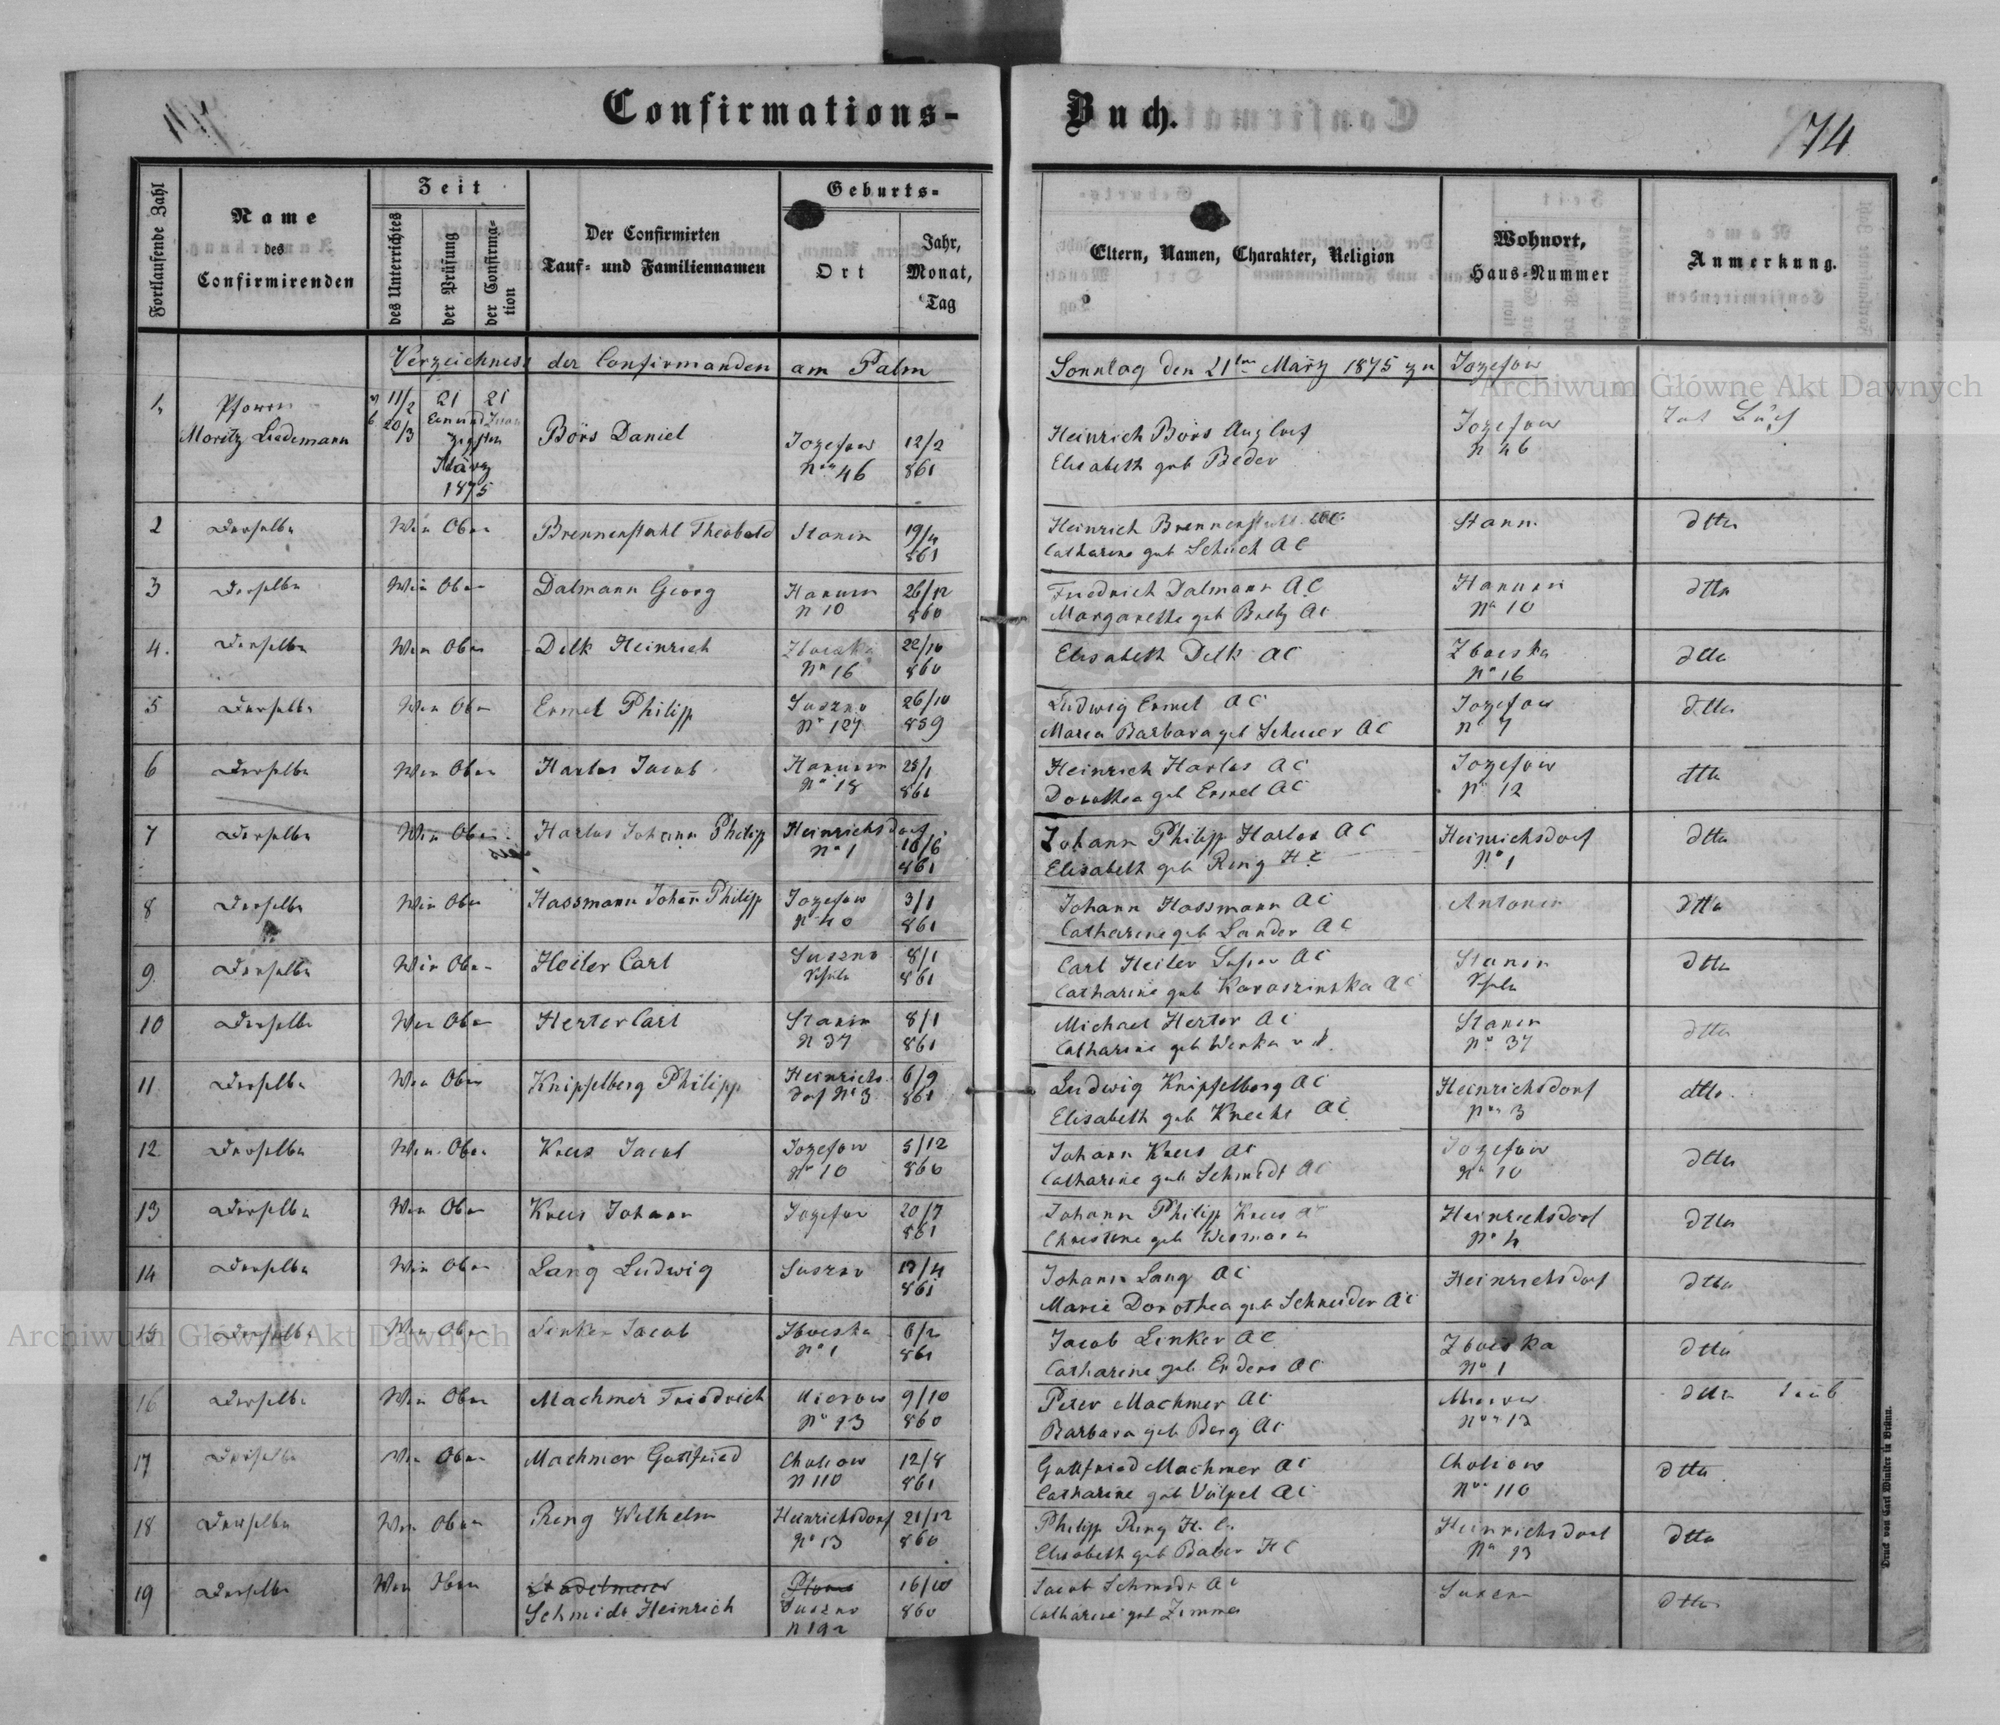 Confirmations-
Buch.
74
Fortlaufende Zahl
Name
des
Confirmirenden
Zeit
des Unterrichtes
der Prüfung
der Confirma-
tion
Der Confirmirten
Tauf- und Familiennamen
Geburts-
Ort
Jahr,
Monat,
Tag
Eltern, Namen, Charakter, Religion
Wohnort,
Haus-Nummer
Anmerkung.
Verzeichniss der Confirmanden am Palm
Sonntag den 21ten März 1875 zu Jozefow
1,
Moritz Liedemann
11/2
20/3
21 21
März
1875
Börs Daniel
Jozefow
No 46
12/2
861
Heinrich Börs
Elisabeth geb Beder
Jozefow
N 46
2 Derselbe Wie Oben Brennenstuhl Theobald Stanin 19/4
861
Heinrich Brennenstuhl
Catharine geb Schuch AC
Stanin
dtto
3 Derselbe Wie Oben Dalmann Georg Hanunin
N 10
26/12
860
Friedrich Dalmann A.C
Margarethe geb AC
Hanunin
No 10
dtto
4. Derselbe Wie Oben Delk Heinrich Zboiska
No 16
22/10
860
Elisabeth Delk AC
Zboiska
No 16
dtto
5 Derselbe Wie Oben Ermel Philipp Suszno
No 127
26/10
859
Ludwig Ermel AC
Maria Barbara geb Scheuer AC
Jozefow
No 7
dtto
6 Derselbe Wie Oben Harlos Jacob Hanunin
No 18
861
Heinrich Harlos AC
Dorothea geb Ermel AC
Jozefow
No 12
dtto
7 Derselbe Wie Oben Harlos Johann Philipp Heinrichsdorf
No 1
10/6
861
Johann Philipp Harlos AC
Elisabeth geb Ring H.C
Heinrichsdorf
No 1
dtto
8 Derselbe Wie Oben Hassmann Johañ Philipp Jozefow
No 40
3/1
861
Johann Hassmann AC
Catharine geb Sander AC
Antonin
dtto
9. Derselbe Wie Oben Heiler Carl Suszno
8/1
861
Carl Heiler AC
Catharine geb Karaszinska AC
Stanin
dtto
10 Derselbe Wie Oben Herter Carl Stanin
N 37
8/1
861
Michael Herter AC
Catharine geb
Stanin
No 37
dtto
11. Derselbe Wie Oben Knipfelberg Philipp Heinrichs-
dorf No 3
6/9
861
Ludwig Knipfelberg AC
Elisabeth geb Knecht AC
Heinrichsdorf
No 3
dtto.
12. Derselbe Wie Oben Kreis Jacob Jozefow
No 10
5/12
860
Johann Kreis AC
Catharine geb Schmidt AC
Jozefow
No 10
dtto
13 Derselbe Wie Oben Kreis Johann Jozefow 20/7
861
Johann Philipp Kreis
Christine geb
Heinrichsdorf
No 4
dtto
14 Derselbe Wie Oben Lang Ludwig Suszno
861
Johann Lang AC
Marie Dorothea geb Schneider AC
Heinrichsdorf
dtto
15 Derselbe Wie Oben Linker Jacob Zboiska
No 1
6/2
861
Jacob Linker AC
Catharine geb Enders AC
Zboiska
No 1
dtto
16 Derselbe Wie Oben Machmer Friedrich Mierow
No 13
9/10
860
Peter Machmer AC
Barbara geb Berg AC
Mierow
No 13
dtto taub
17 Derselbe Wie Oben Machmer Gottfried Choliow
N 110
12/8
861
Gottfried Machmer AC
Catharine geb Völpel AC
Choliow
No 110
dtto
18 Derselbe Wie Oben Ring Wilhelm Heinrichsdorf
No 13
21/12
860
Philipp Ring H.C.
Elisabeth geb Bauer HC
Heinrichsdorf
No 13
dtto
19 Derselbe Wie Oben
Schmidt Heinrich
Suszno
N 192
16/10
860
Jacob Schmidt AC
Catharine geb Zimmer
Suszno
dtto
Druck von Carl Winiker in Brünn.
Archiwum Główne Akt Dawnych
Archiwum Główne Akt Dawnych